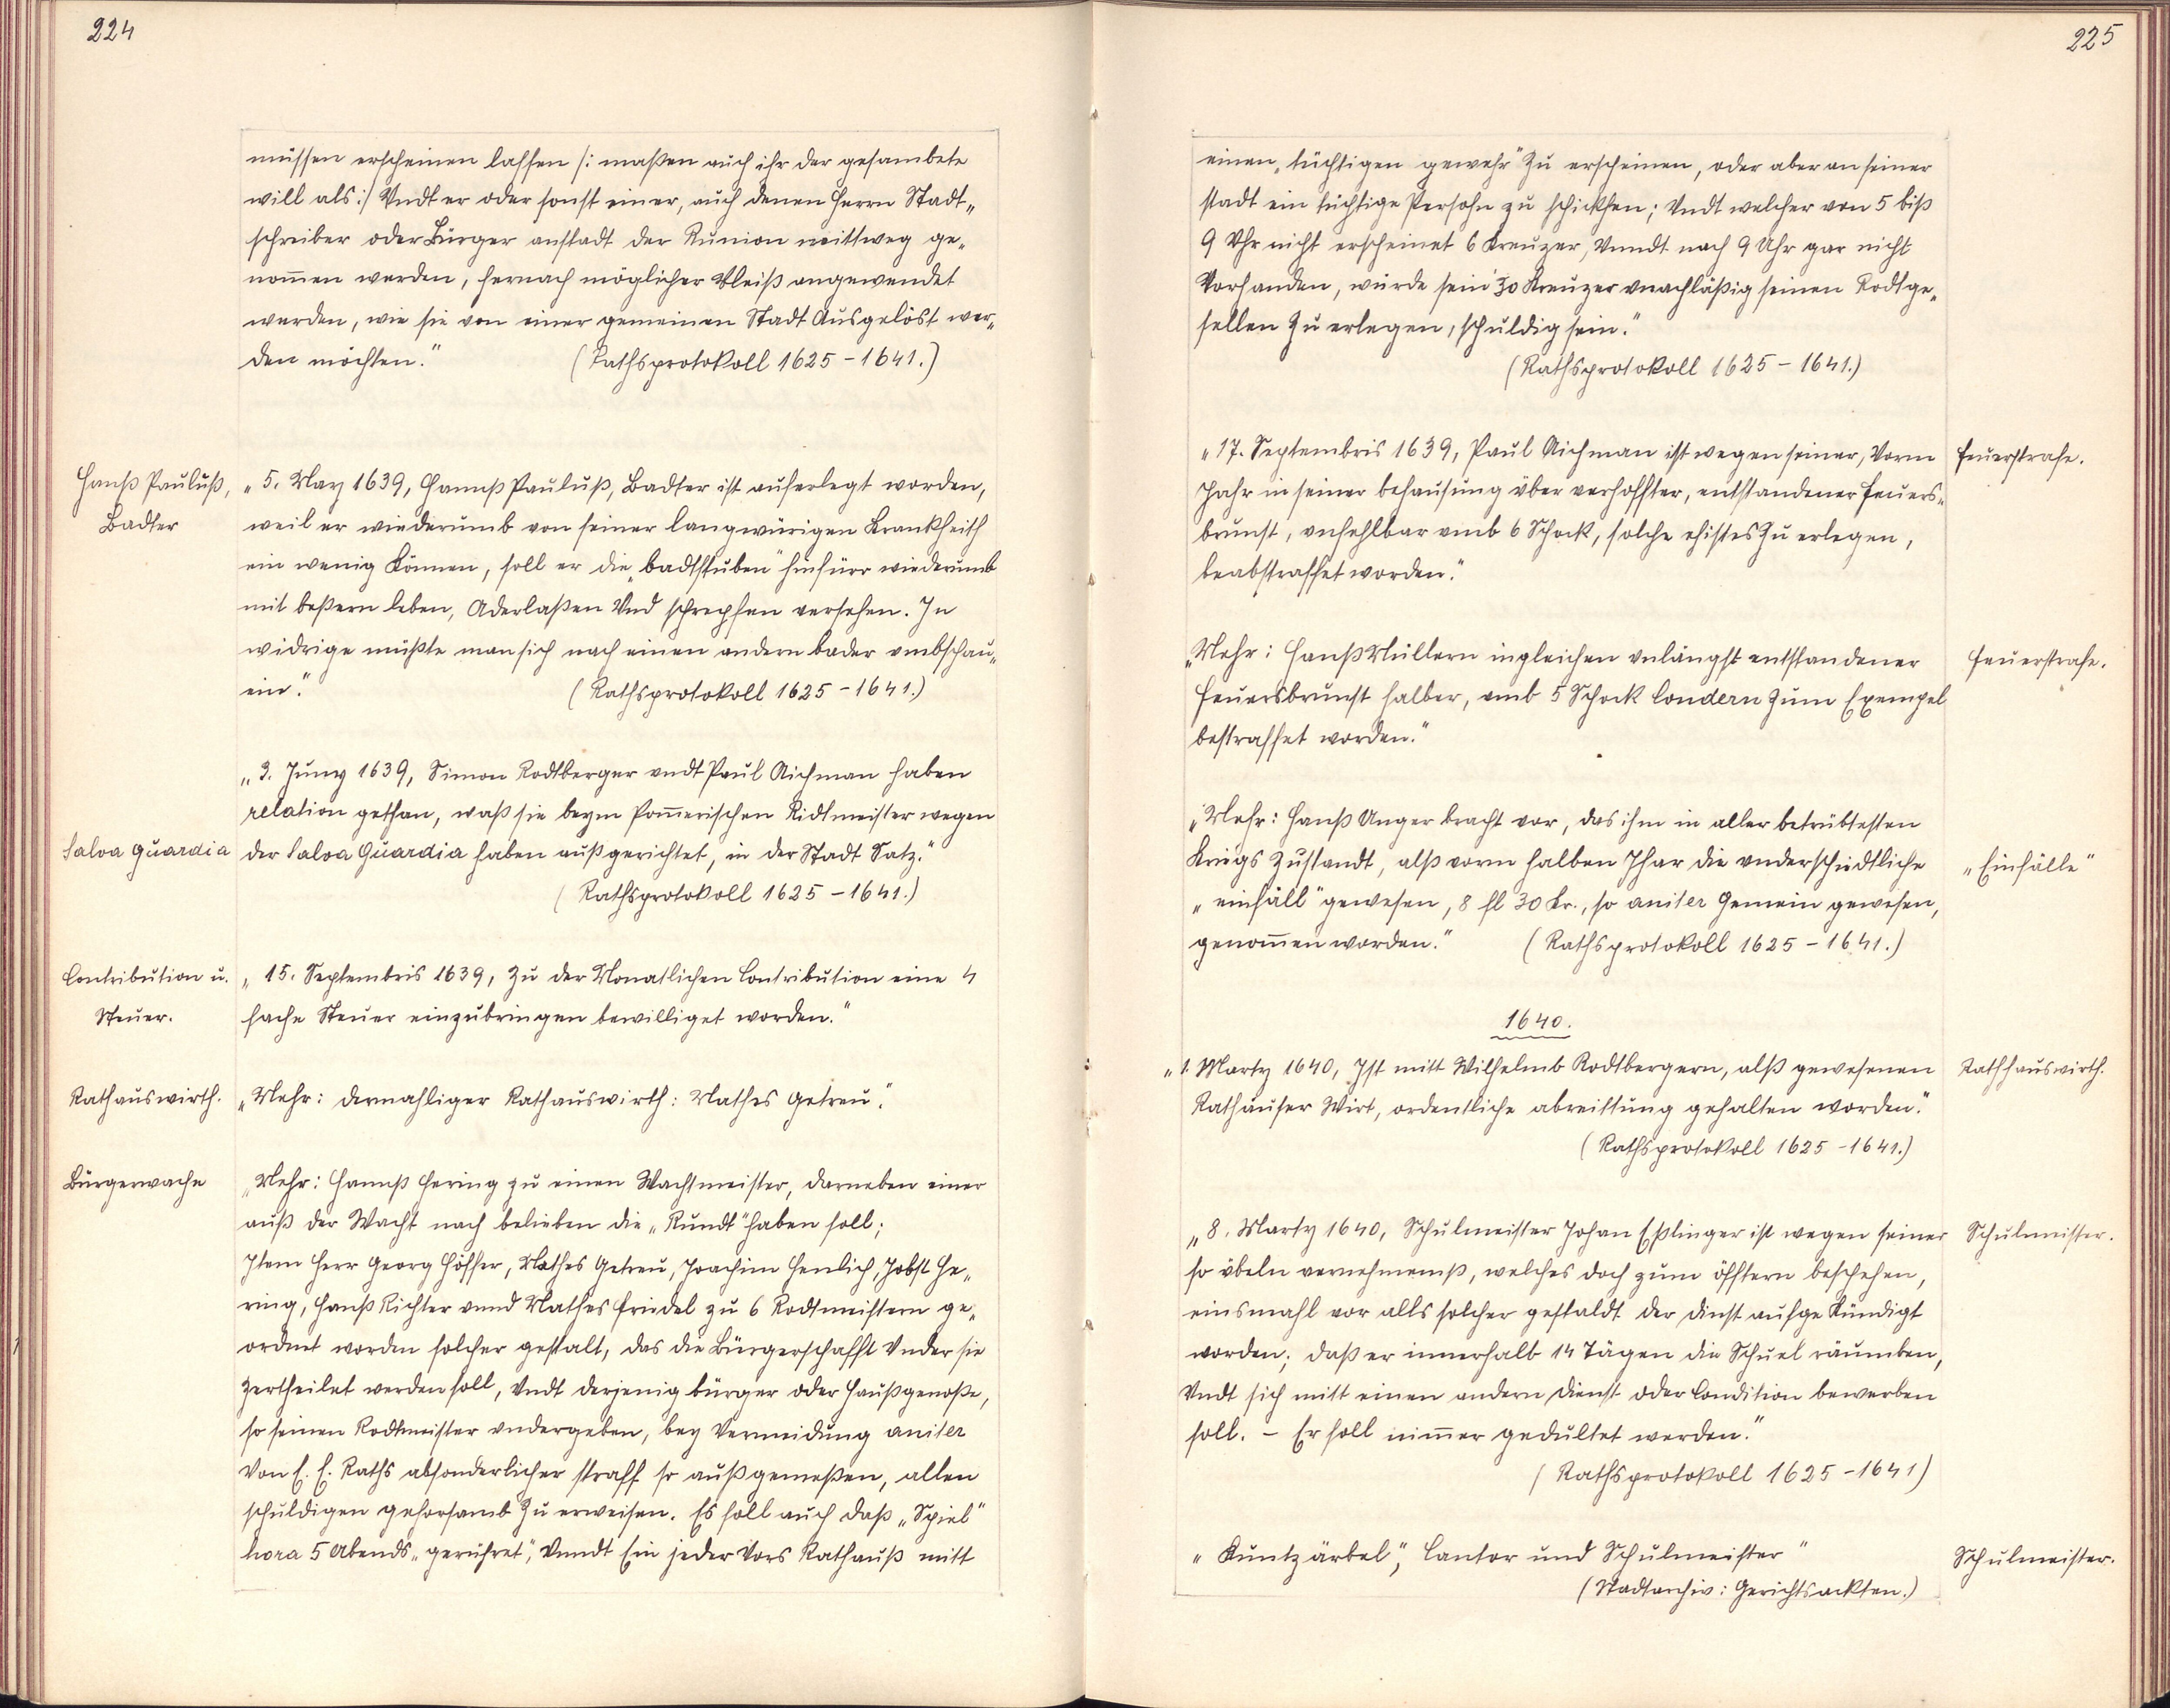 224
müssen erscheinen lassen /: maßen auch ihr der gesambete
will als :/ Vndt er oder sonst einer, auch denen Herrn Stadt„
schreiber oder Bürger anstadt der Runion mittweg ge„
nom̄en werden, hernach möglicher Vleiß angewendet
werden, wie sie von einer gemeinen Stadt Ausgelöst wer„
den möchten." (Rathsprotokoll 1625-1641.)
Hanß Pauluß,
Badter
„5. May 1639, Hannß Pauluß, Badter ist auferlegt worden,
weil er wiederumb von seiner langwürigen Krankheith
ein wenig Können, soll er die „badtstuben" hinfüro wiederumb
mit beßern leben, Aderlaßen Vnd schrepfen versehen. In
widrige müßte man sich nach einen andern bader vmbschau„
ein." (Rathsprotokoll 1625-1641.)
„3. Juny 1639, Simon Rodtberger vndt Paul Aichman haben
relation gethan, waß sie beym Pom̄erischen Ridtmeister wegen
Salva guardia
der Salva Guardia haben außgerichtet, in der Stadt Satz."
(Rathsprotokoll 1625-1641.)
Contribution u.
Steuer.
„15. Septembris 1639, Zu der Monatlichen Contribution eine 4
fache Steuer einzubringen bewilliget worden."
Rathauswirth.
„Mehr: dermahliger Rathauswirth: Mathes Getreu."
Bürgerwache
„Mehr: Hannß Hering zu einen Wachtmeister, darneben einer
auß der Wacht nach belieben die „Rundt" haben soll;
Item Herr Georg Höffer, Mathes Getreu, Joachim Henlich, Jobst He„
ring, Hanß Richter vnnd Mathes Friedel zu 6 Rodtmeistern ge„
ordnet worden solcher gestalt, das die Bürgerschafft Vnder sie
zertheilet werden soll, Vndt derjenig bürger oder Haußgenoße,
so seinen Rodtmeister vndergeben, bey Vermeidung aniter
Von E. E. Raths absonderlicher straff so außgemeßen, allen
schuldigen gehorsamb Zu erweisen. Es soll auch daß „Spiel"
hora 5 Abends „gerühret", Vnndt Ein jeder Vors Rathauß mitt
225
einen „tüchtigen gewehr" Zu erscheinen, oder aber an seiner
stadt ein tüchtige Persohn zu schickhen; Vndt welcher von 5 biß
9 Vhr nicht erscheinet 6 Kreuzer, Vnndt nach 9 Uhr gar nicht
Vorhanden, würde sein 30 Kreuzer vnachläßig seinen Rodtge„
sellen Zu erlegen, schuldig sein."
(Rathsprotokoll 1625-1641.)
„17. Septembris 1639, Paul Aichman ist wegen seiner, Vorm
Feuerstrafe.
Jahr in seiner behausung über verhoffter, entstandener Feuers„
brunst, vnfehlbar vmb 6 Schock, solche ehistes Zu erlegen,
beabstraffet worden."
„Mehr: Hanß Müllern ingleichen vnlängst entstandener
Feuerstrafe.
Feuersbrunst halber, vmb 5 Schock Condern Zum Exempel
bestraffet worden."
„Mehr: Hanß Unger bracht vor, das ihm in aller betrübtesten
Kriegs Zustandt, alß vorm halben Jhar die vnderschiedtliche
„Einfälle"
„einfäll" gewesen, 8 fl 30 Kr., so aniter Gemein gewesen,
genom̄en worden." (Rathsprotokoll 1625-1641.)
1640.
„1. Marty 1640, Ist mitt Wilhelmb Rodtbergern, alß gewesenen
Rathhauswirth.
Rathauser Wirt, ordentliche abreittung gehalten worden."
(Rathsprotokoll 1625-1641.)
„8. Marty 1640, Schulmeister Johan Eßlinger ist wegen seiner
Schulmeister.
so übeln vernehmenß, welches doch zum öfftern beschehen,
einsmahl vor alls solcher gestaldt der dinst aufgekündigt
worden; daß er innerhalb 14 Tägen die Schuel räumben,
Vndt sich mitt einen andern Dienst oder Condition bewerben
soll. - Er soll nim̄er gedultet werden."
(Rathsprotokoll 1625-1641)
„Kuntz ärbel", Cantor und Schulmeister"
Schulmeister.
(Stadtarchiv: Gerichtsackten.)